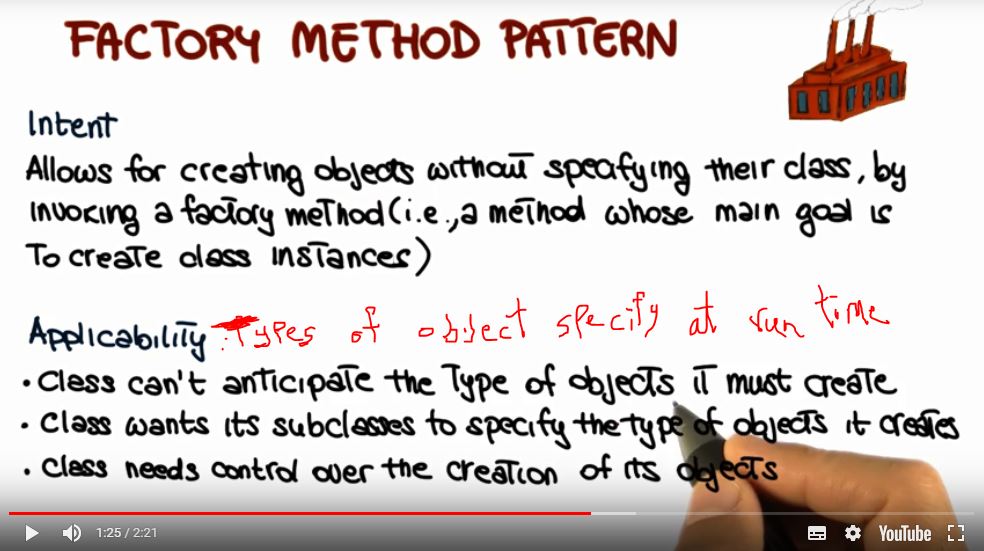 FACTORY METHOD PATTERN
Intent
Allows for creating objects without specifying their class, by
invoking a factory method (i.e., a method whose main goal is
To create class instances)
Applicability Types of object specify at run time
• Class can't anticipate the Type of objects it must create
• Class wants its subclasses to specify the type of objects it creates
• Class needs control over the creation of its objects
1:25 / 2:21
YouTube